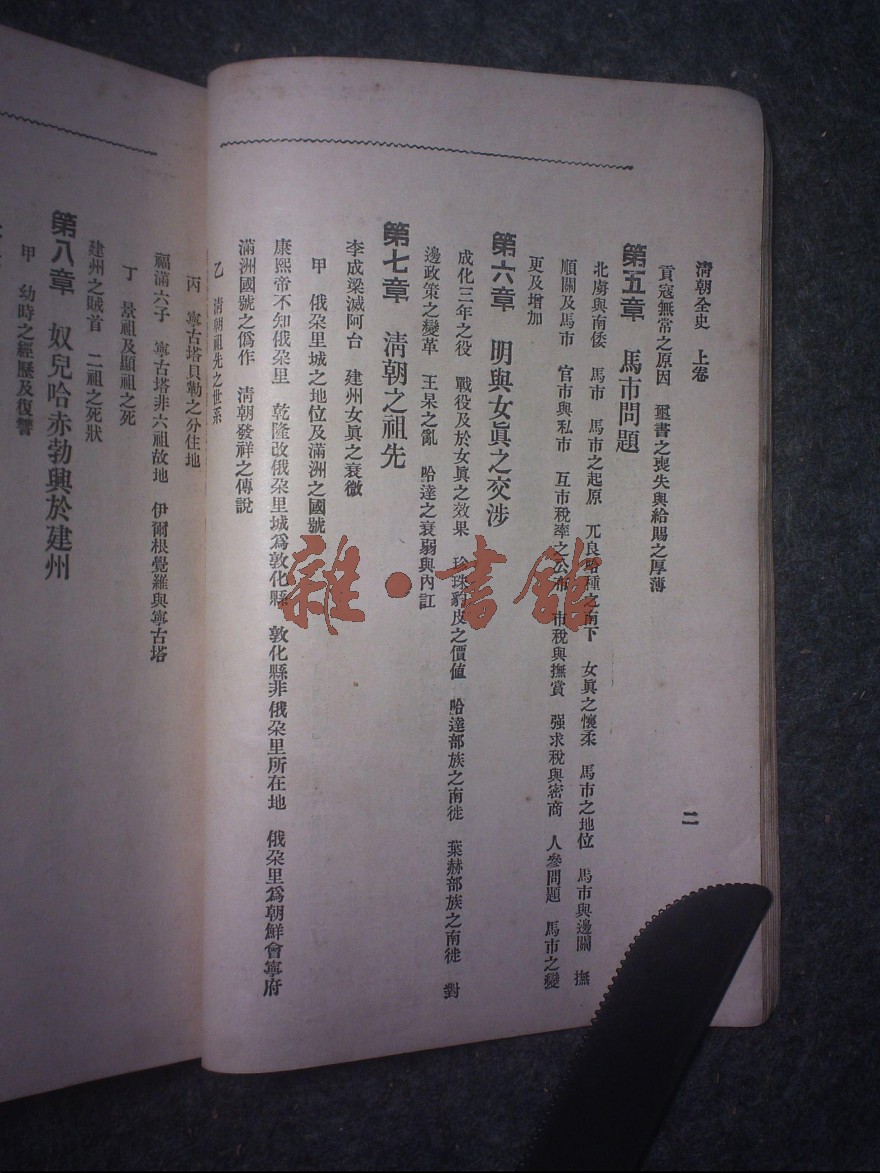 清朝全史　上卷
二
貢寇無常之原因　璽書之喪失與給賜之厚薄
第五章　馬市問題
北虜與南倭　馬市　馬市之起原　兀良哈種之南下　女眞之懷柔　馬市之地位　馬市與邊關　撫
順關及馬市　官市與私市　互市稅率之公布　市稅與撫賞　强求稅與密商　人參問題　馬市之變
更及增加
第六章　明與女眞之交涉
成化三年之役　戰役及於女眞之效果　珍珠豹皮之價値　哈達部族之南徙　葉赫部族之南徙　對
邊政策之變革　王杲之亂　哈達之衰弱與內訌
第七章　淸朝之祖先
李成梁滅阿台　建州女眞之衰微
甲　俄朶里城之地位及滿洲之國號
康熙帝不知俄朶里　乾隆改俄朶里城爲敦化縣　敦化縣非俄朶里所在地　俄朶里爲朝鮮會寧府
滿洲國號之僞作　淸朝發祥之傳說
乙　淸朝祖先之世系
丙　寧古塔貝勒之分住地
福滿六子　寧古塔非六祖故地　伊爾根覺羅與寧古塔
丁　景祖及顯祖之死
建州之賊首　二祖之死狀
第八章　奴兒哈赤勃興於建州
甲　幼時之經歷及復讐
雜·書館